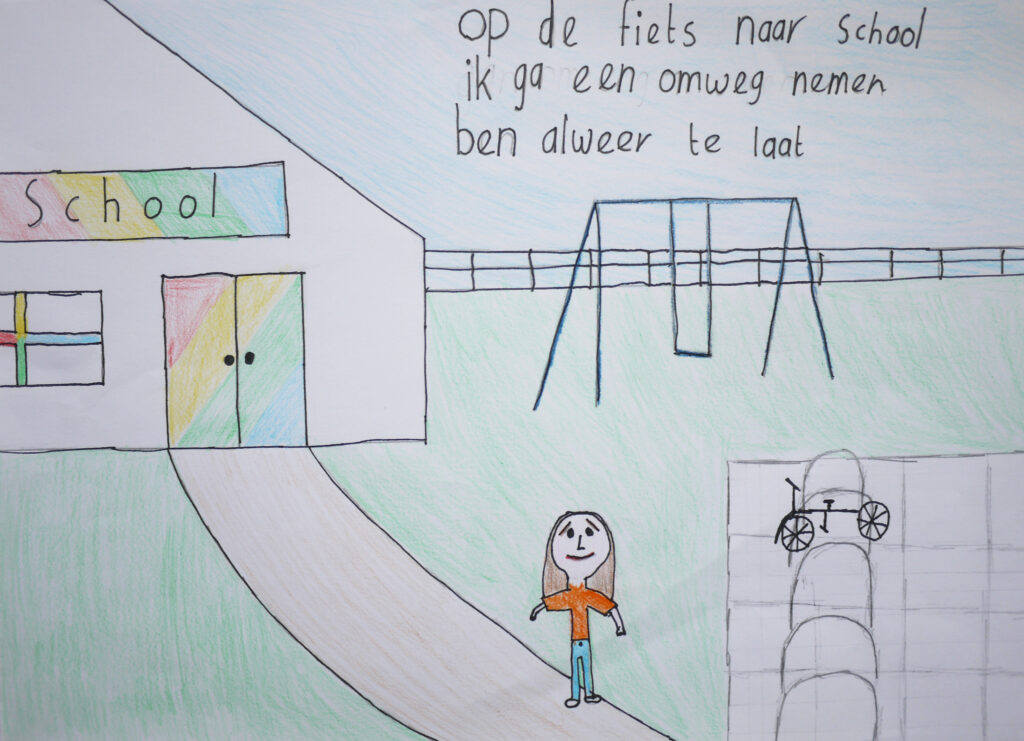 op de fiets naar school
ik ga een omweg nemen
ben alweer te laat
School